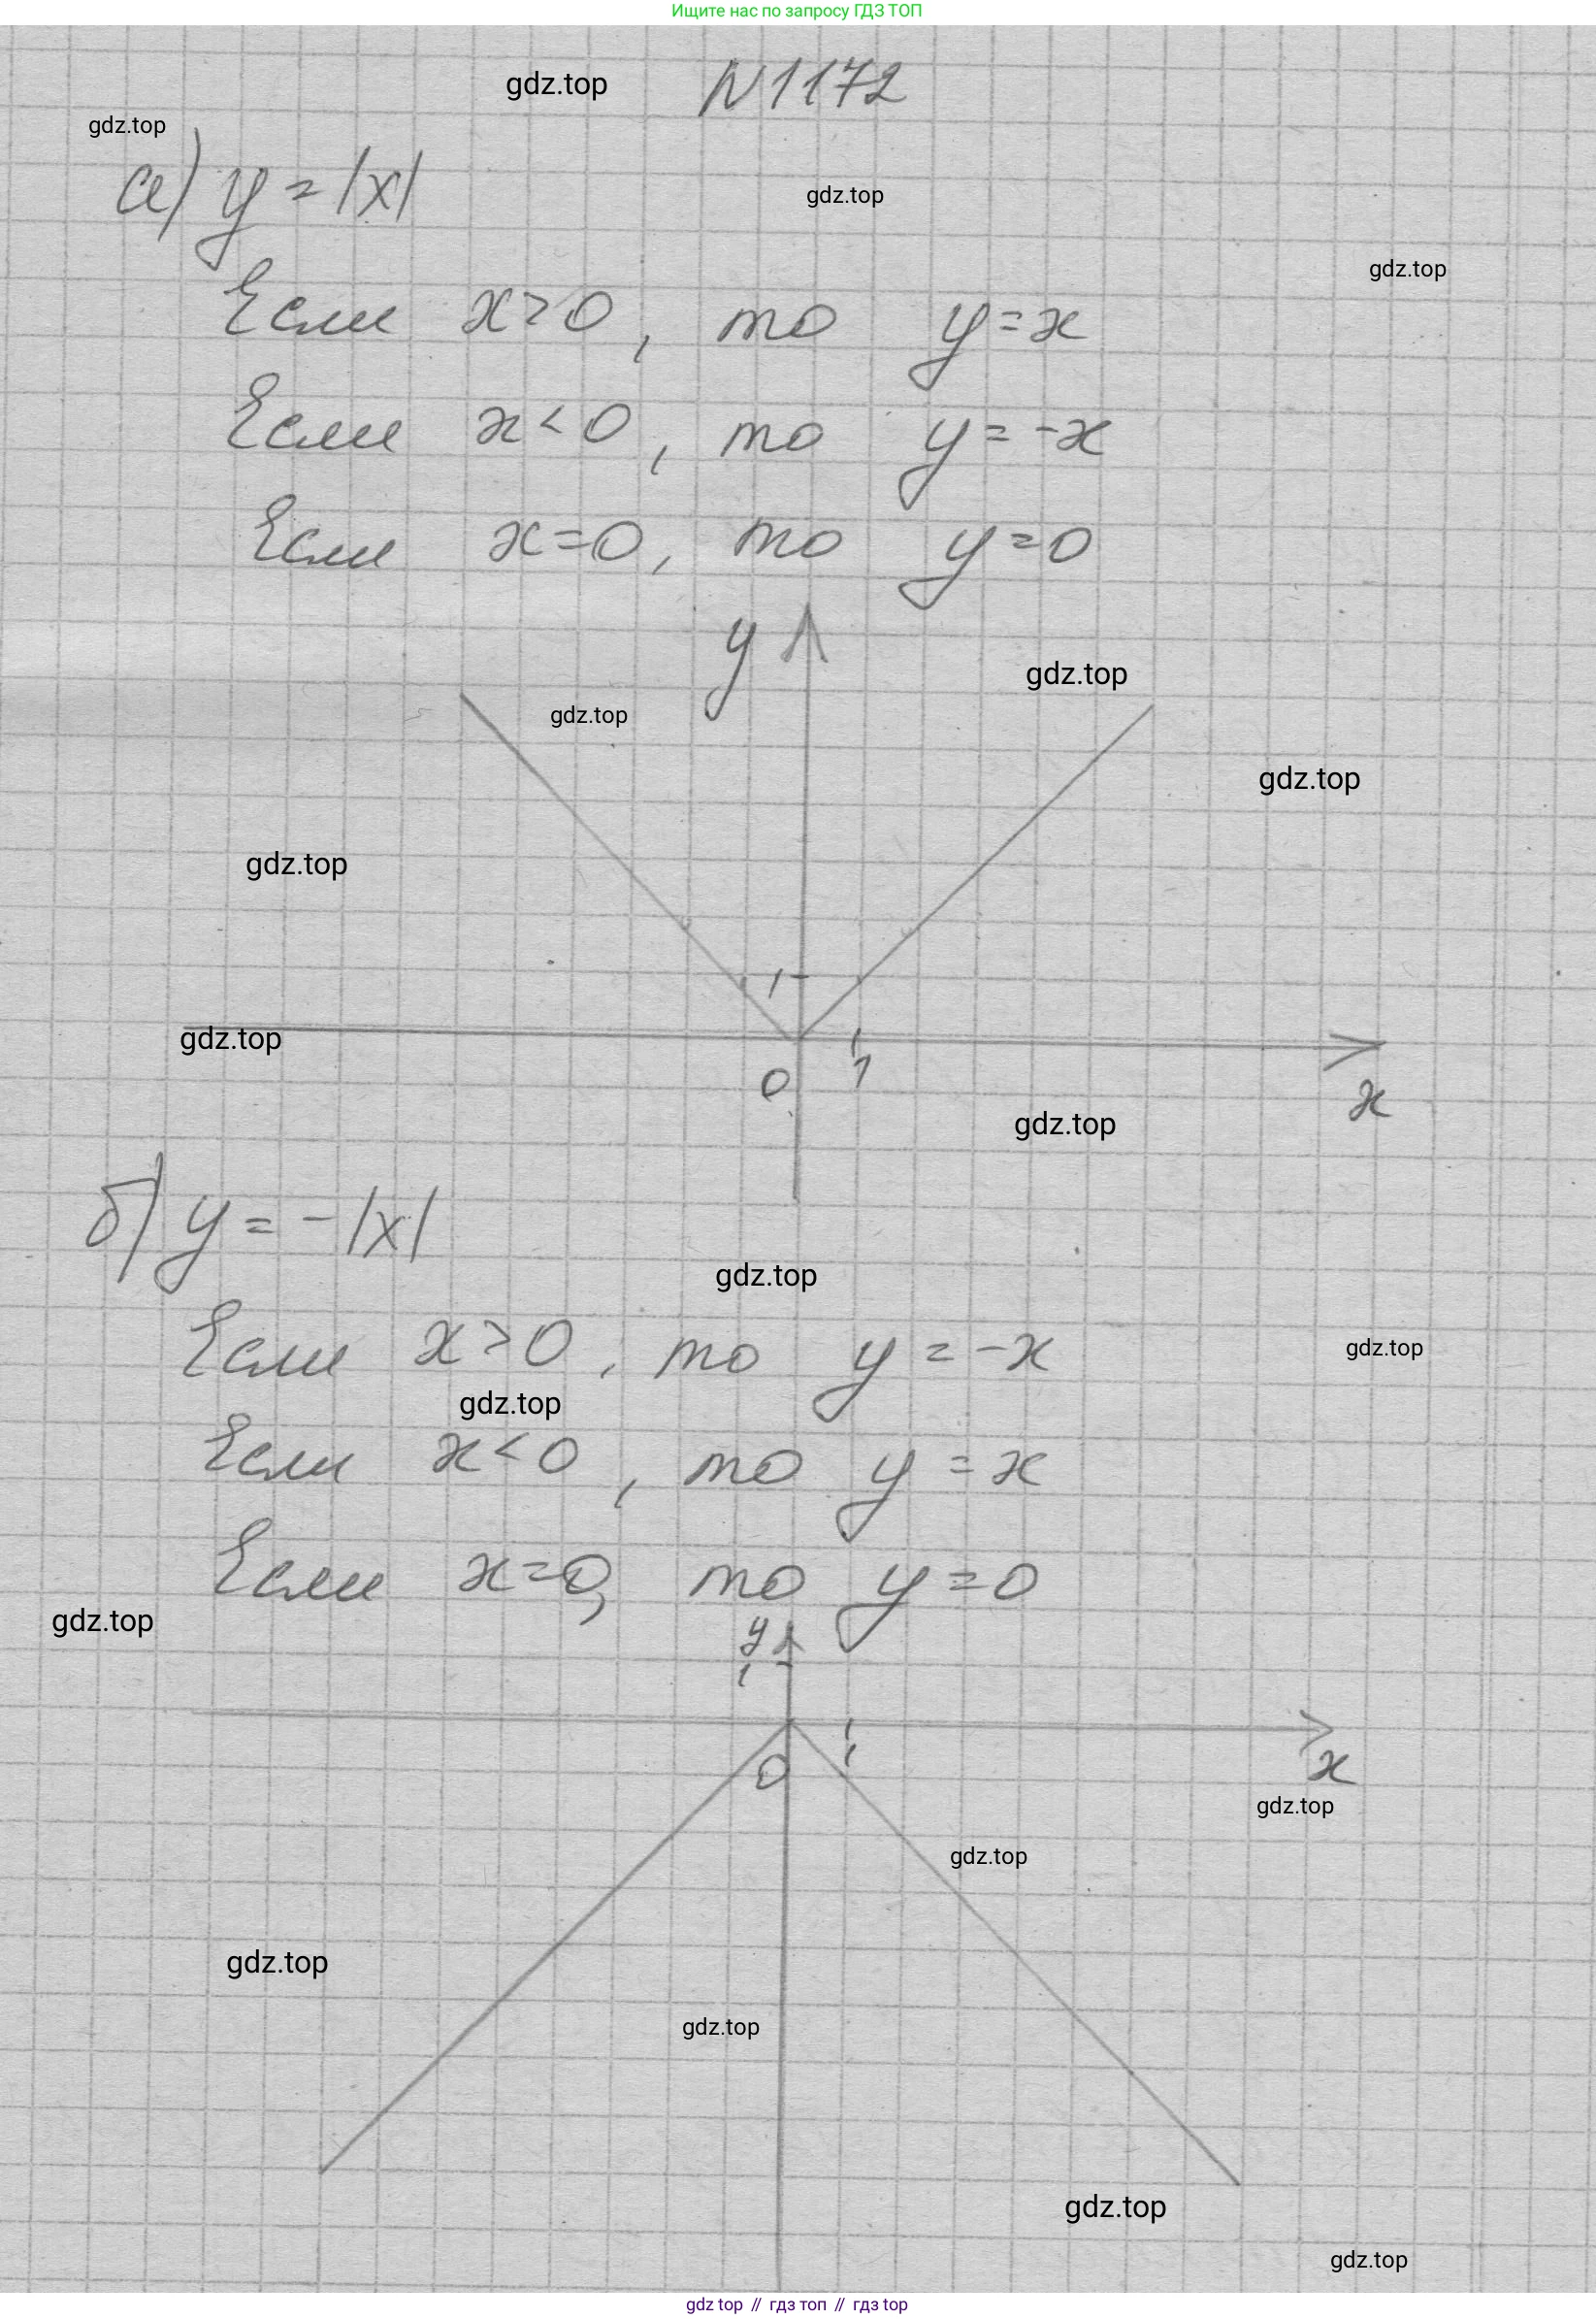 Ищите нас по запросу ГДЗ ТОП
gdz.top
N1172
gdz.top
а) y = |x|
gdz.top
gdz.top
Если x>0, то y=x
Если x<0, то y=-x
Если x=0, то y=0
y
gdz.top
gdz.top
gdz.top
gdz.top
1
gdz.top
0
1
x
gdz.top
б) y = -|x|
gdz.top
Если x>0, то y=-x
gdz.top
gdz.top
Если x<0, то y=x
Если x=0, то y=0
gdz.top
y
1
0
1
x
gdz.top
gdz.top
gdz.top
gdz.top
gdz.top
gdz.top
gdz top // гдз топ // гдз top